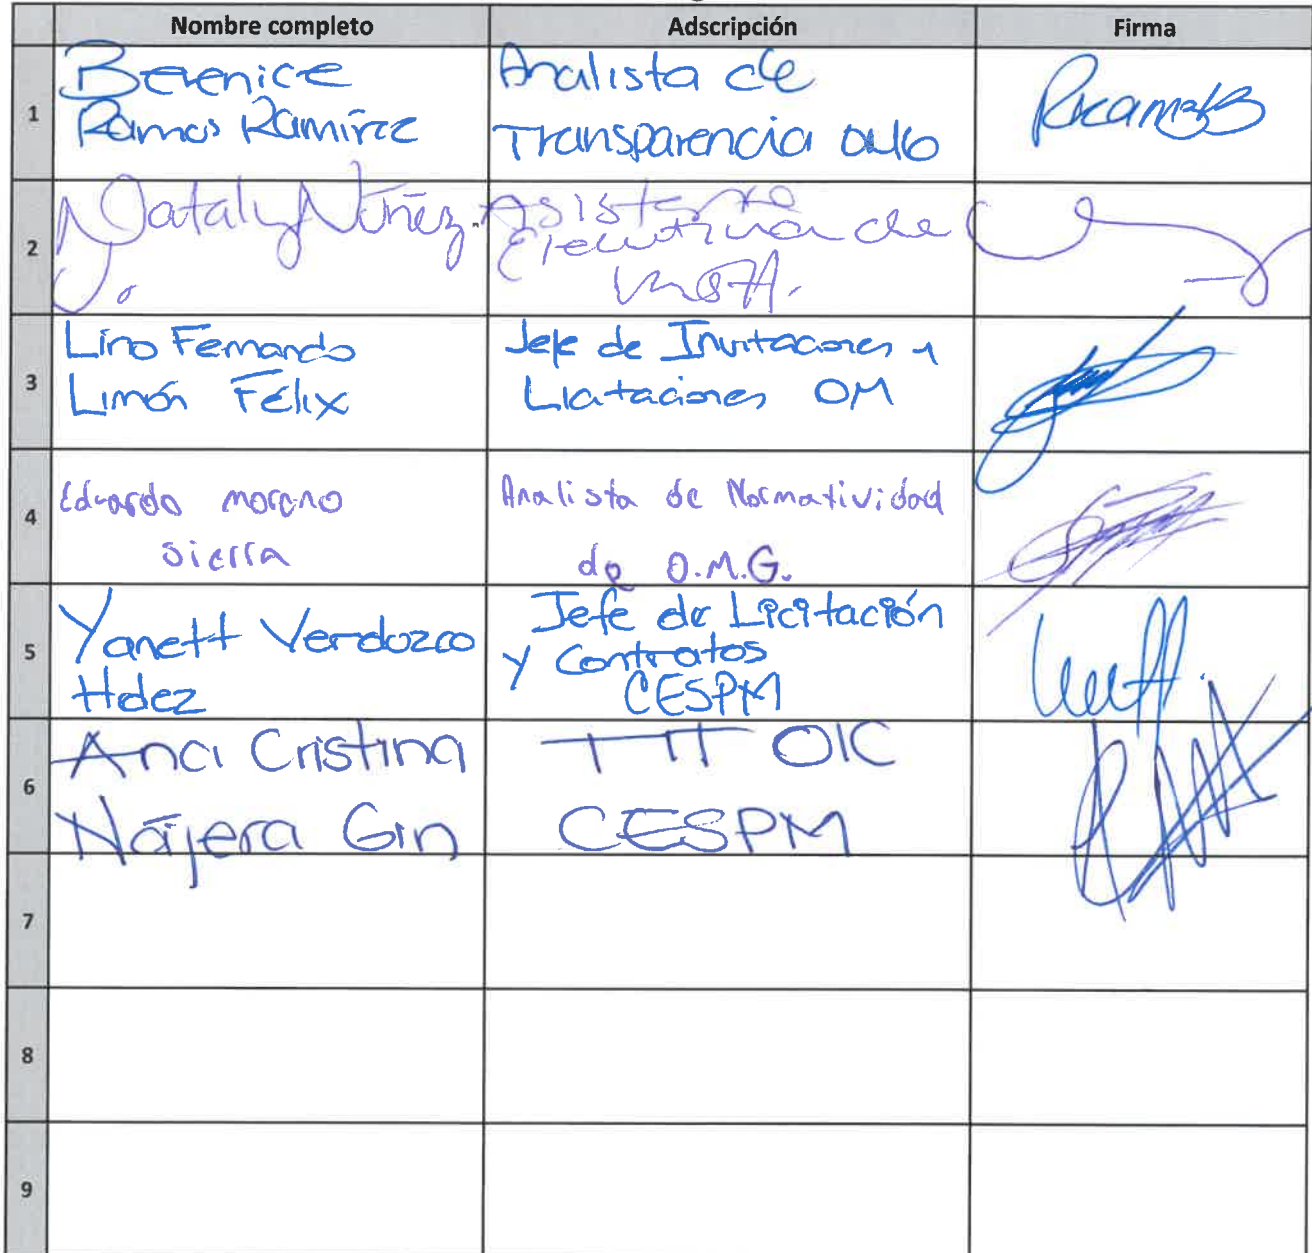 Nombre completo Adscripción Firma
1
Berenice
Ramos Ramírez
Analista de
Transparencia OMG
2
Nataly Núñez
J.
Asistente
Ejecutiva de
3
Lino Fernando
Limón Félix
Jefe de Invitaciones y
Licitaciones OM
4
Eduardo moreno
Sierra
Analista de Normatividad
de O.M.G.
5
Yanett Verdozco
Hdez
Jefe de Licitación
y Contratos
CESPM
6
Ana Cristina
Nájera Gin
TIT OIC
CESPM
7
8
9